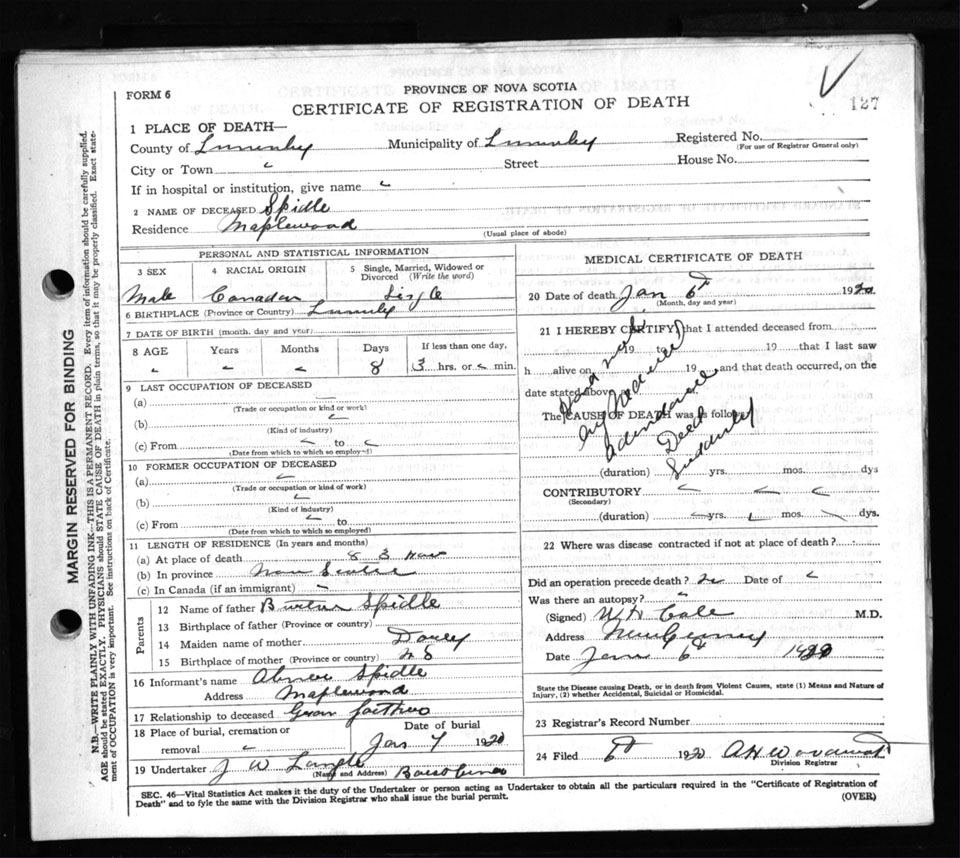 FORM 6
PROVINCE OF NOVA SCOTIA
CERTIFICATE OF REGISTRATION OF DEATH
127
1 PLACE OF DEATH—
County of Lunenburg Municipality of Lunenburg Registered No.
(For use of Registrar General only)
City or Town Street House No.
If in hospital or institution, give name
2 NAME OF DECEASED Spidle
Residence Maplewood
(Usual place of abode)
PERSONAL AND STATISTICAL INFORMATION
3 SEX 4 RACIAL ORIGIN 5 Single, Married, Widowed or Divorced (Write the word)
Male Canadian Single
6 BIRTHPLACE (Province or Country)
7 DATE OF BIRTH (month, day and year)
8 AGE Years Months Days If less than one day,
8 3 hrs. or min.
9 LAST OCCUPATION OF DECEASED
(a)
(Trade or occupation or kind or work)
(b)
(Kind of industry)
(c) From to
(Date from which to which so employed)
10 FORMER OCCUPATION OF DECEASED
(a)
(Trade or occupation or kind of work)
(b)
(Kind of industry)
(c) From to
(Date from which to which so employed)
11 LENGTH OF RESIDENCE (In years and months)
(a) At place of death 8 3
(b) In province Nova Scotia
(c) In Canada (if an immigrant)
Parents
12 Name of father Spidle
13 Birthplace of father (Province or country)
14 Maiden name of mother
15 Birthplace of mother (Province or country) N S
16 Informant's name Abner Spidle
Address Maplewood
17 Relationship to deceased Gran father
18 Place of burial, cremation or removal Date of burial
Jan 7 1920
19 Undertaker J W
(Name and Address)
MEDICAL CERTIFICATE OF DEATH
20 Date of death Jan 6th 1920
(Month, day and year)
21 I HEREBY CERTIFY that I attended deceased from
19 to 19 that I last saw
h alive on 19 and that death occurred, on the
date stated above
The CAUSE OF DEATH was as follows:
Medical
attendance
Died
Suddenly
(duration) yrs. mos. dys
CONTRIBUTORY
(Secondary)
(duration) yrs. mos. dys.
22 Where was disease contracted if not at place of death?
Did an operation precede death? no Date of
Was there an autopsy?
(Signed) W H Cole M.D.
Address New Germany
Date Jan 6th 1920
State the Disease causing Death, or in death from Violent Causes, state (1) Means and Nature of
Injury, (2) whether Accidental, Suicidal or Homicidal.
23 Registrar's Record Number
24 Filed 6th 1920
Division Registrar
SEC. 46—Vital Statistics Act makes it the duty of the Undertaker or person acting as Undertaker to obtain all the particulars required in the "Certificate of Registration of
Death" and to fyle the same with the Division Registrar who shall issue the burial permit.
(OVER)
MARGIN RESERVED FOR BINDING
N.B.—WRITE PLAINLY WITH UNFADING INK—THIS IS A PERMANENT RECORD. Every item of information should be carefully supplied.
AGE should be stated EXACTLY. PHYSICIANS should STATE CAUSE OF DEATH in plain terms, so that it may be properly classified. Exact state-
ment of OCCUPATION is very important. See instructions on back of Certificate.